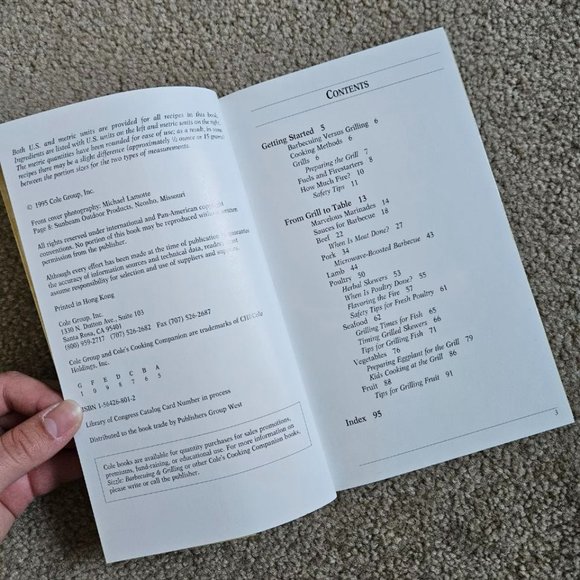 Both U.S. and metric units are provided for all recipes in this book.
Ingredients are listed with U.S. units on the left and metric units on the right.
The metric quantities have been rounded for ease of use; as a result, in some
recipes there may be a slight difference (approximately ½ ounce or 15 grams)
between the portion sizes for the two types of measurements.
© 1995 Cole Group, Inc.
Front cover photography: Michael Lamotte
Page 8: Sunbeam Outdoor Products, Neosho, Missouri
All rights reserved under international and Pan-American copyright
conventions. No portion of this book may be reproduced without written
permission from the publisher.
Although every effort has been made at the time of publication to guarantee
the accuracy of information sources and technical data, readers must
assume responsibility for selection and use of suppliers and
Printed in Hong Kong
Cole Group, Inc.
1330 N. Dutton Ave., Suite 103
Santa Rosa, CA 95401
(800) 959-2717 (707) 526-2682 Fax (707) 526-2687
Cole Group and Cole's Cooking Companion are trademarks of Cole
Holdings, Inc.
G F E D C B A
1 0 9 8 7 6 5
ISBN 1-56426-801-2
Library of Congress Catalog Card Number in process
Distributed to the book trade by Publishers Group West
Cole books are available for quantity purchases for sales promotions,
premiums, fund-raising, or educational use. For more information on
Sizzle: Barbecuing & Grilling or other Cole's Cooking Companion books,
please write or call the publisher.
CONTENTS
Getting Started 5
Barbecuing Versus Grilling 6
Cooking Methods 6
Grills 6
Preparing the Grill 7
Fuels and Firestarters 8
How Much Fire? 10
Safety Tips 11
From Grill to Table 13
Marvelous Marinades 14
Sauces for Barbecue 18
Beef 22
When Is Meat Done? 27
Pork 34
Microwave-Boosted Barbecue 43
Lamb 44
Poultry 50
Herbal Skewers 53
When Is Poultry Done? 55
Flavoring the Fire 57
Safety Tips for Fresh Poultry 61
Seafood 62
Grilling Times for Fish 65
Timing Grilled Skewers 66
Tips for Grilling Fish 71
Vegetables 76
Preparing Eggplant for the Grill 79
Kids Cooking at the Grill 86
Fruit 88
Tips for Grilling Fruit 91
Index 95
3